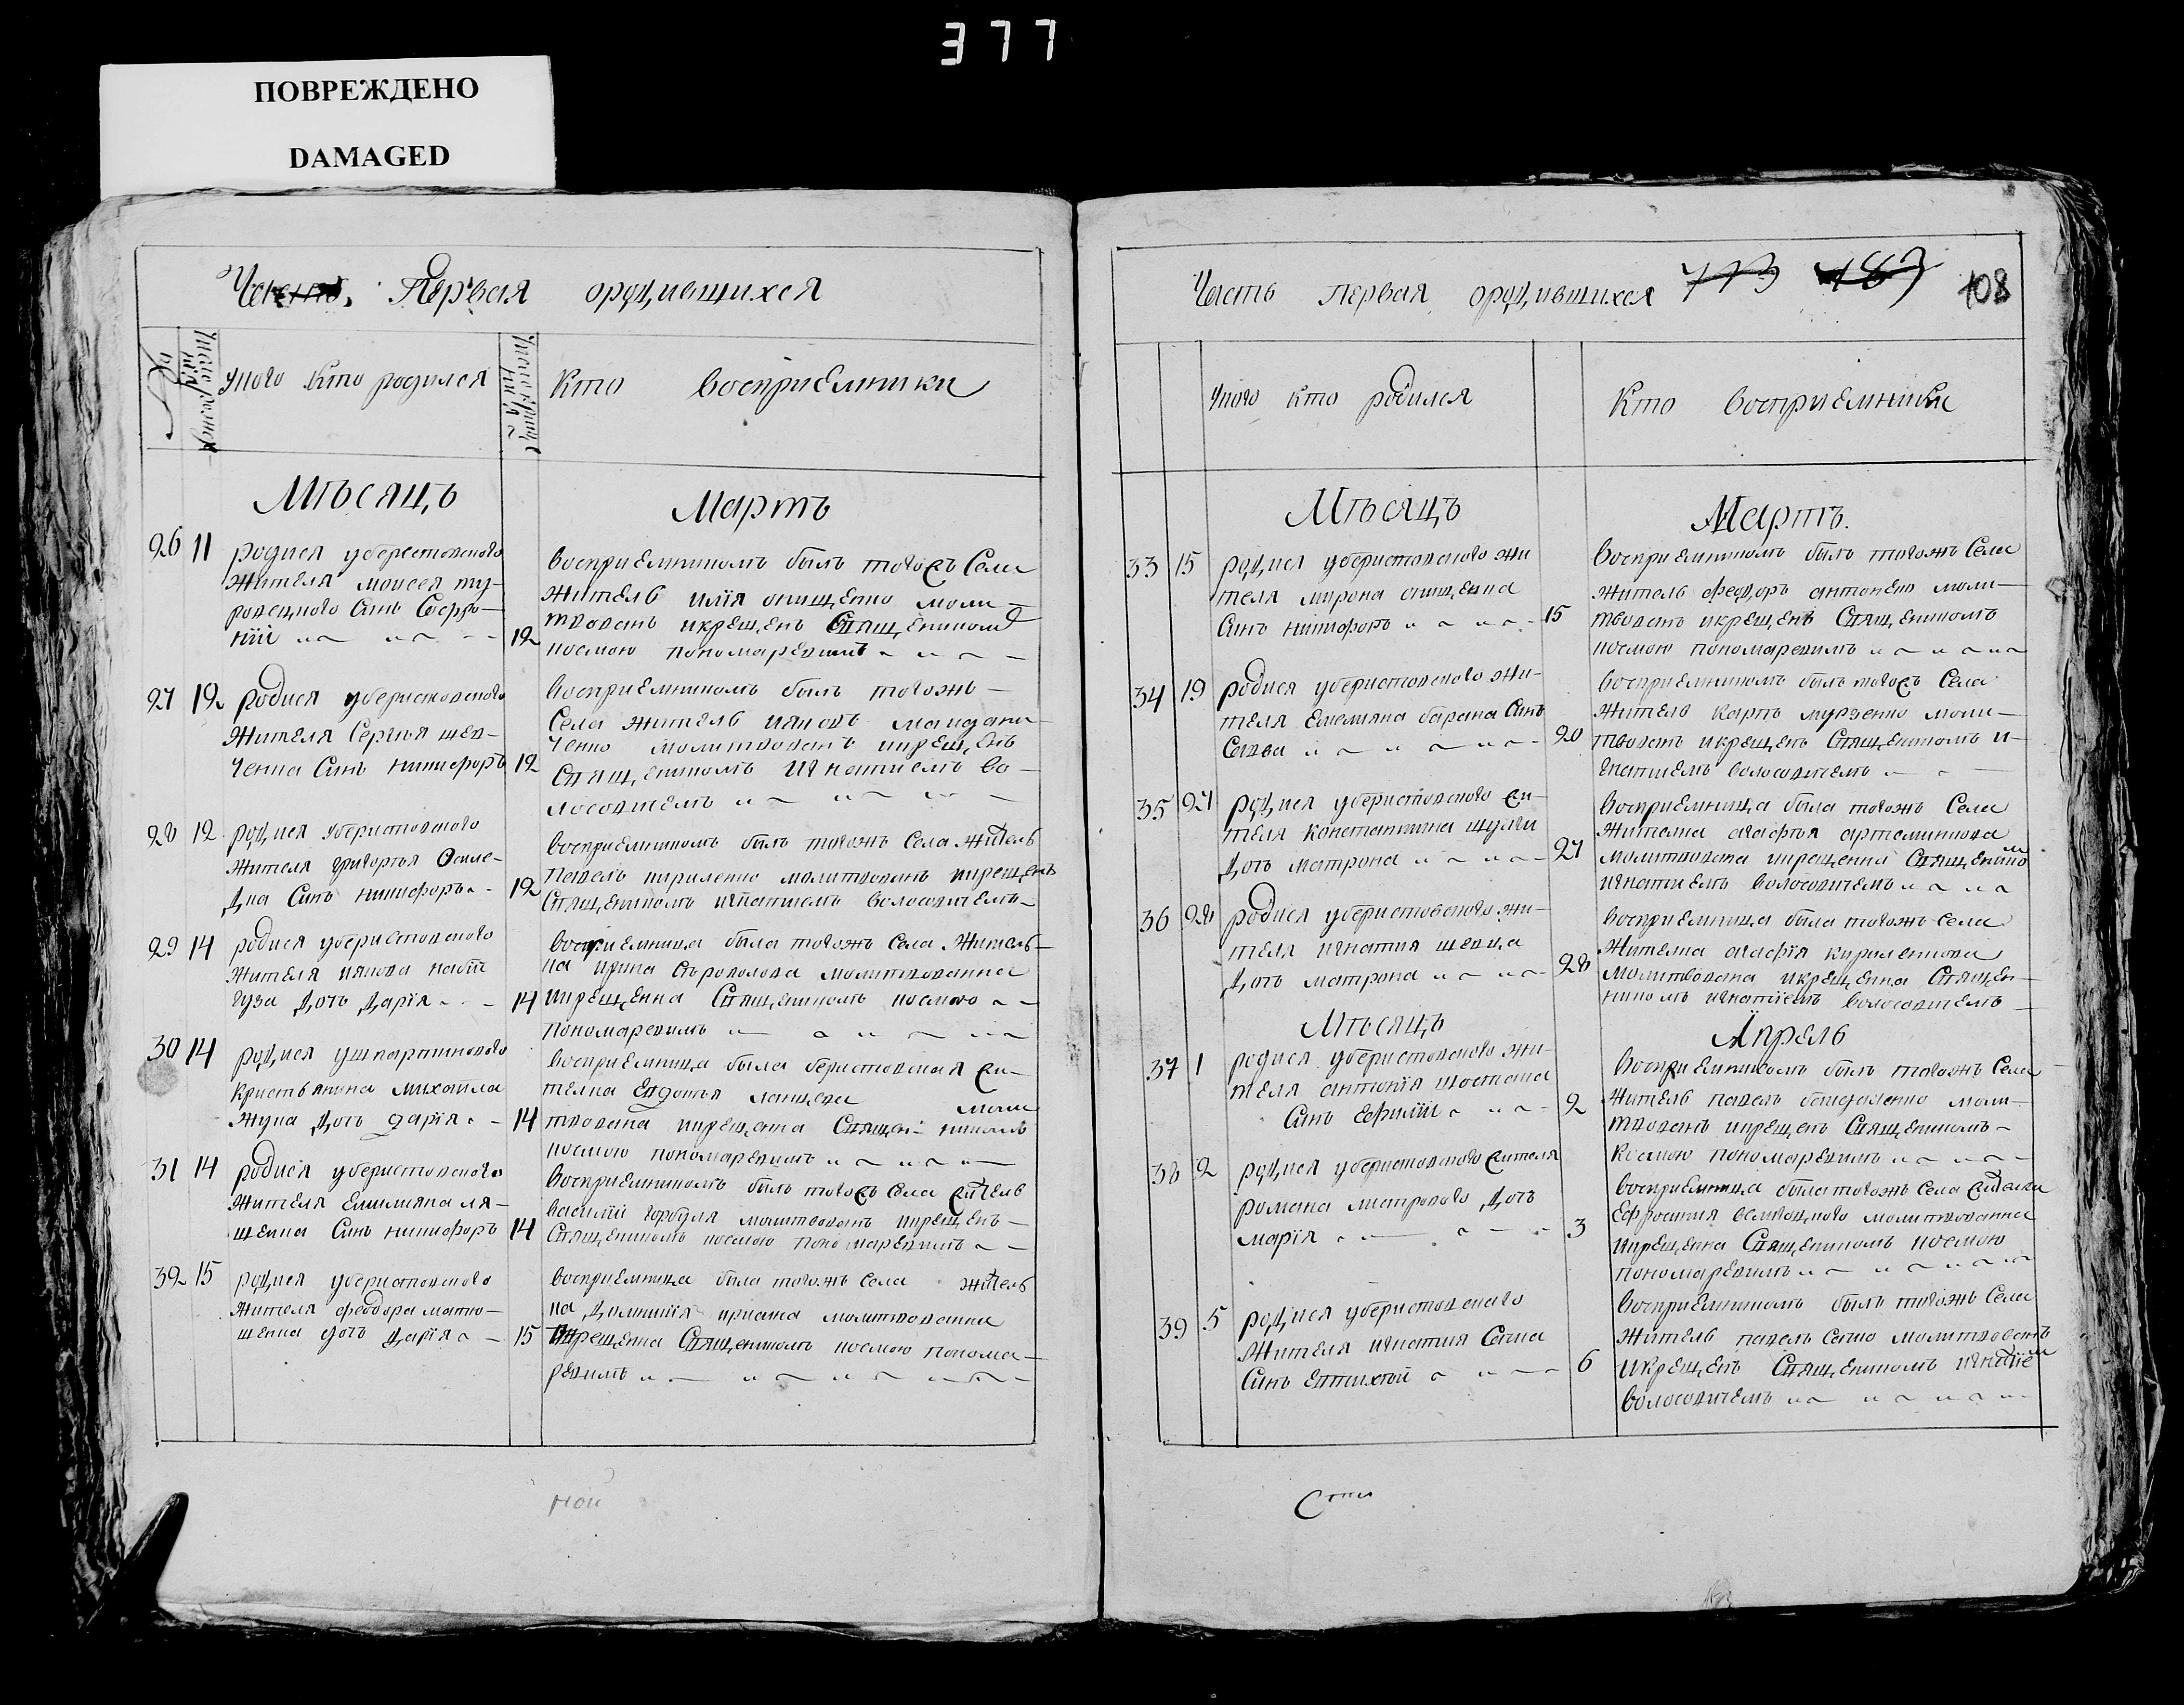 377
ПОВРЕЖДЕНО
DAMAGED
Первая ородившихся
№
число рожде
уного кто родился
кто восприемники
Мѣсяцъ Мартъ
26 11 родися уберестовского
жителя моисея ту-
ровецкого Синъ Софро-
ній
12
восприемникомъ былъ тогожъ Села
житель илія онищенко моли-
твованъ икрещенъ Священикомъ
космою пономаревимъ
27 12 родися уберистовского
жителя Сергѣя шев-
ченка Синъ никифоръ 12
восприемникомъ былъ тогожъ
Села житель ияковъ
ченко молитвованъ икрещенъ
Священикомъ Игнатиемъ во-
лосовичемъ
28 12 родися уберистовского
жителя григорія
Синъ никифоръ 12
восприемникомъ былъ тогожъ Села житель
павелъ кириленко молитвованъ икрещенъ
Священикомъ игнатиемъ волосовичемъ
29 14 родися уберистовского
жителя иякова
гуза дочь дарія 14
восприемница была тогожъ Села житель-
ка ирина молитвованна
икрещенна Священикомъ космою
пономаревимъ
30 14 родися
кристьянина михаила
жука дочь дарія 14
восприемница была беристовская жи-
телка Евдокия моли
твована икрещена Священикомъ
космою пономаревимъ
31 14 родися уберистовского
жителя Емилияна ля-
шенка Синъ никифоръ 14
восприемникомъ былъ тогожъ Села житель
василій молитвованъ икрещенъ
Священикомъ космою пономаревимъ
32 15 родися уберистовского
жителя феодора матю-
шенка дочь дарія 15
восприемница была тогожъ Села житель
ка молитвованна
икрещенна Священикомъ космою понома-
ревимъ
Часть первая ородившихся 108
уного кто родился
Кто восприемники
Мѣсяцъ Мартъ.
33 15 родися уберистовского жи
теля мирона онищенка
Синъ никифоръ 15
восприемникомъ былъ тогожъ Села
житель феодоръ антонено моли-
твованъ икрещенъ Священикомъ
космою пономаревимъ
34 19 родися уберистовского жи-
теля Емелияна барана Синъ
Савва 20
восприемникомъ былъ тогожъ Села
житель карпъ мурзенко моли-
твованъ икрещенъ Священикомъ и-
гнатиемъ волосовичемъ
35 27 родися уберистовского жи-
теля константина шулги
дочь матрона 27
восприемница была тогожъ Села
жителка агафья артеминкова
молитвована икрещенна Священико
игнатиемъ волосовичемъ
36 28 родися уберистовского жи-
теля игнатия шевца
дочь матрона 28
восприемница была тогожъ Села
жителка агафія кириленкова
молитвована икрещенна Священ-
никомъ игнатіемъ волосовичемъ
Мѣсяцъ Апрель
37 1 родися уберистовского жи-
теля антонія шостака
Синъ Ефимій 2
восприемникомъ былъ тогожъ Села
житель павелъ моли-
твованъ икрещенъ Священикомъ
космою пономаревимъ
38 2 родися уберистовского жителя
романа дочь
марія 3
восприемница была тогожъ Села жителка
Ефросиния молитвованна
икрещенна Священикомъ космою
пономаревимъ
39 5 родися уберистовского
жителя игнатия Сача
Синъ Евтихій 6
восприемникомъ былъ тогожъ Села
житель павелъ молитвованъ
икрещенъ Священикомъ игнатіем
волосовичемъ